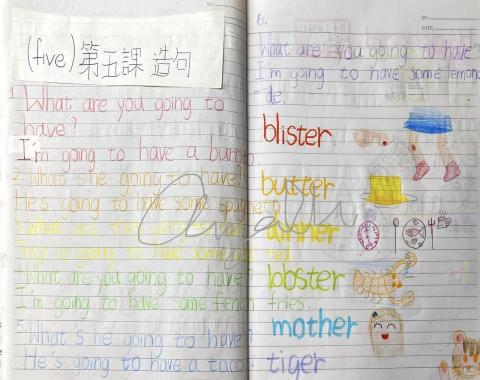 (five)第五課 造句
1. What are you going to
have?
I'm going to have a burrito.
2. What's he going to have?
He's going to have some spaghetti.
They're going to have some
4. What are you going to have?
I'm going to have some french fries.
5. What's he going to have?
He's going to have a taco.
6.
What are you going to have?
I'm going to have some lemona
de.
blister
butter
dinner
lobster
mother
tiger